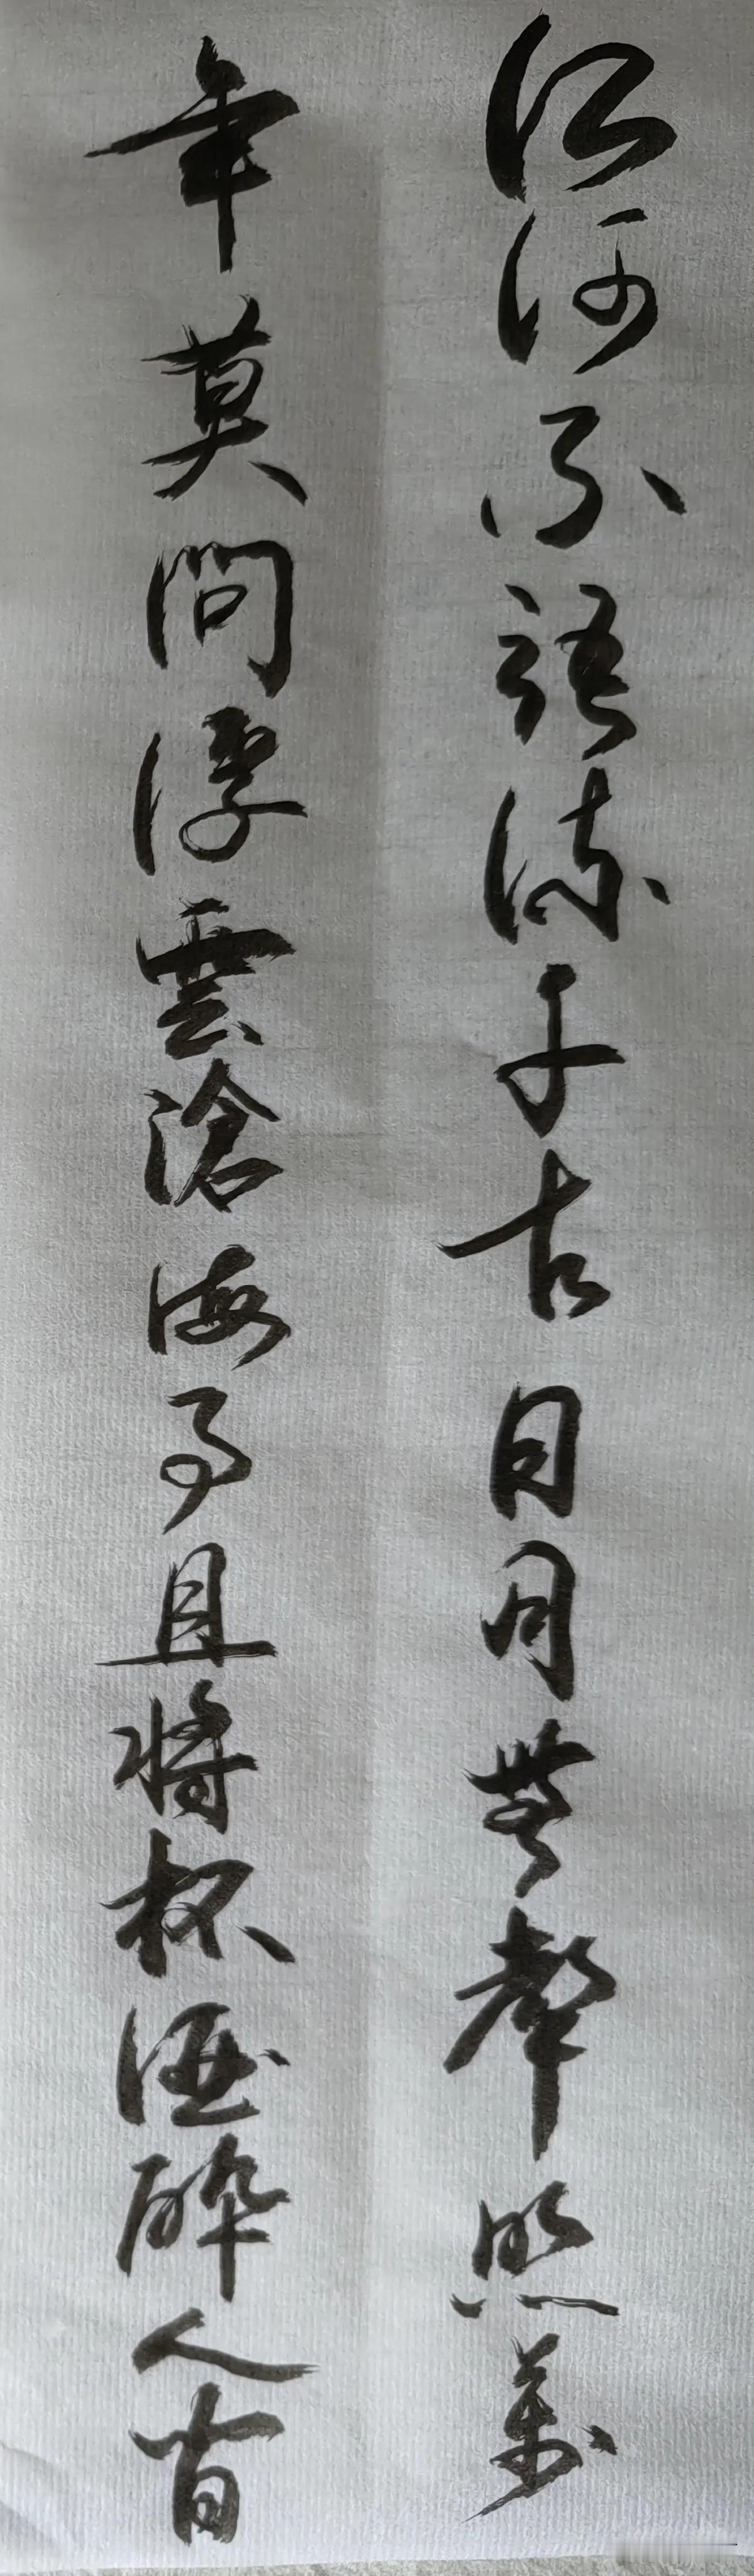 江河不語流千古日月無聲照萬
年莫問浮雲滄海事且將杯酒醉人間